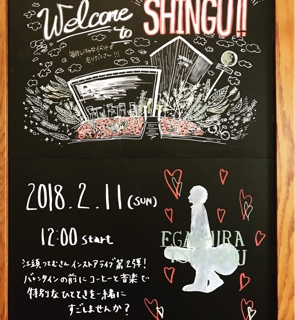 Welcome
to
SHINGU!!
2018.2.11(SUN)
12:00 start
江頭つとむさん インストアライブ 第2弾!
バレンタインの前にコーヒーと音楽で
特別なひとときを一緒に
すごしませんか?
EGASHIRA